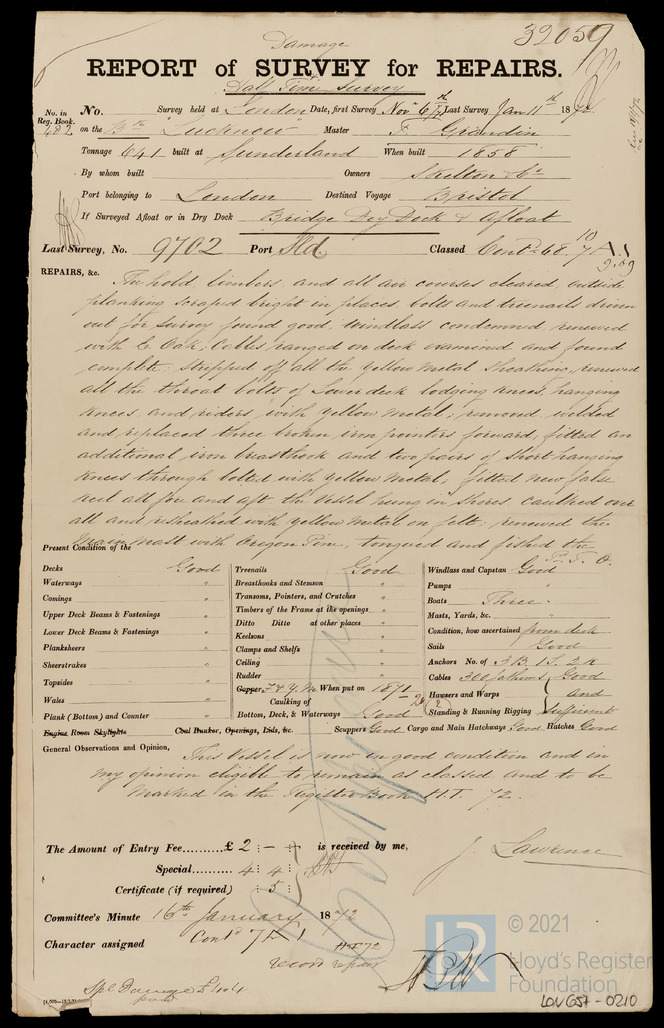 32059
Damage
REPORT of SURVEY for REPAIRS.
Half Time Survey
No. in Reg. Book. No. Survey held at London Date, first Survey Nov 6th 71 Last Survey Jan 11th 1872
482 on the Bk Lucknow Master F Grandin
Tonnage 641 built at Sunderland When built 1858
By whom built Owners Skelton & Co
Port belonging to London Destined Voyage Bristol
If Surveyed Afloat or in Dry Dock Bridge Dry Dock & Afloat
Last Survey, No. 9702 Port Sld. Classed Contd 68. 7 A.1
10
9.69
REPAIRS, &c.
The hold limbers, and all air courses cleared, outside
planking scraped bright in places, bolts and treenails driven
out for survey found good, windlass condemned, renewed
with E. Oak; Cables ranged on deck examined and found
complete. Stripped off all the yellow metal sheathing, renewed
all the throat bolts of Lower deck lodging knees, hanging
knees, and riders with yellow metal; removed, welded
and replaced three broken iron pointers forward, fitted an
additional iron breasthook and two pairs of short hanging
knees through bolted with yellow metal, fitted new false
keel all fore and aft the vessel hung in shores, caulked over
all and resheathed with yellow metal on felt; renewed the
Main Mast with Oregon Pine, tongued and fished the
P. T. O.
Present Condition of the
Decks Good Treenails Good Windlass and Capstan Good
Waterways " Breasthooks and Stemson " Pumps "
Comings " Transoms, Pointers, and Crutches " Boats Three "
Upper Deck Beams & Fastenings " Timbers of the Frame at the openings " Masts, Yards, &c. "
Lower Deck Beams & Fastenings " Ditto Ditto at other places " Condition, how ascertained from deck
Planksheers " Keelsons " Sails Good
Sheerstrakes " Clamps and Shelfs " Anchors No. of 3 B. 1 S. 2 K
Topsides " Ceiling " Cables 300 fathoms Good
Wales " Rudder " Hawsers and Warps and
Plank (Bottom) and Counter " Copper F & Y. M When put on 1871 Standing & Running Rigging sufficient
Caulking of Bottom, Decks, & Waterways Good
Engine Room Skylights Coal Bunker, Openings, Lids, &c. Scuppers Good Cargo and Main Hatchways Good Hatches Good
General Observations and Opinion, This Vessel is now in good condition and in
my opinion eligible to remain as classed and to be
Marked in the Register Book H.T. 72.
The Amount of Entry Fee.........£ 2 : – : is received by me,
Special.......... 4 : 4 :
Certificate (if required) : 5 :
J. Lawrence
Committee's Minute 16th January 1872
Character assigned Contd 7 A 1
HT 72
record repairs
Spl Damage £4.4.
paid
© 2021
Lloyd's Register
Foundation
LON 657 - 0210